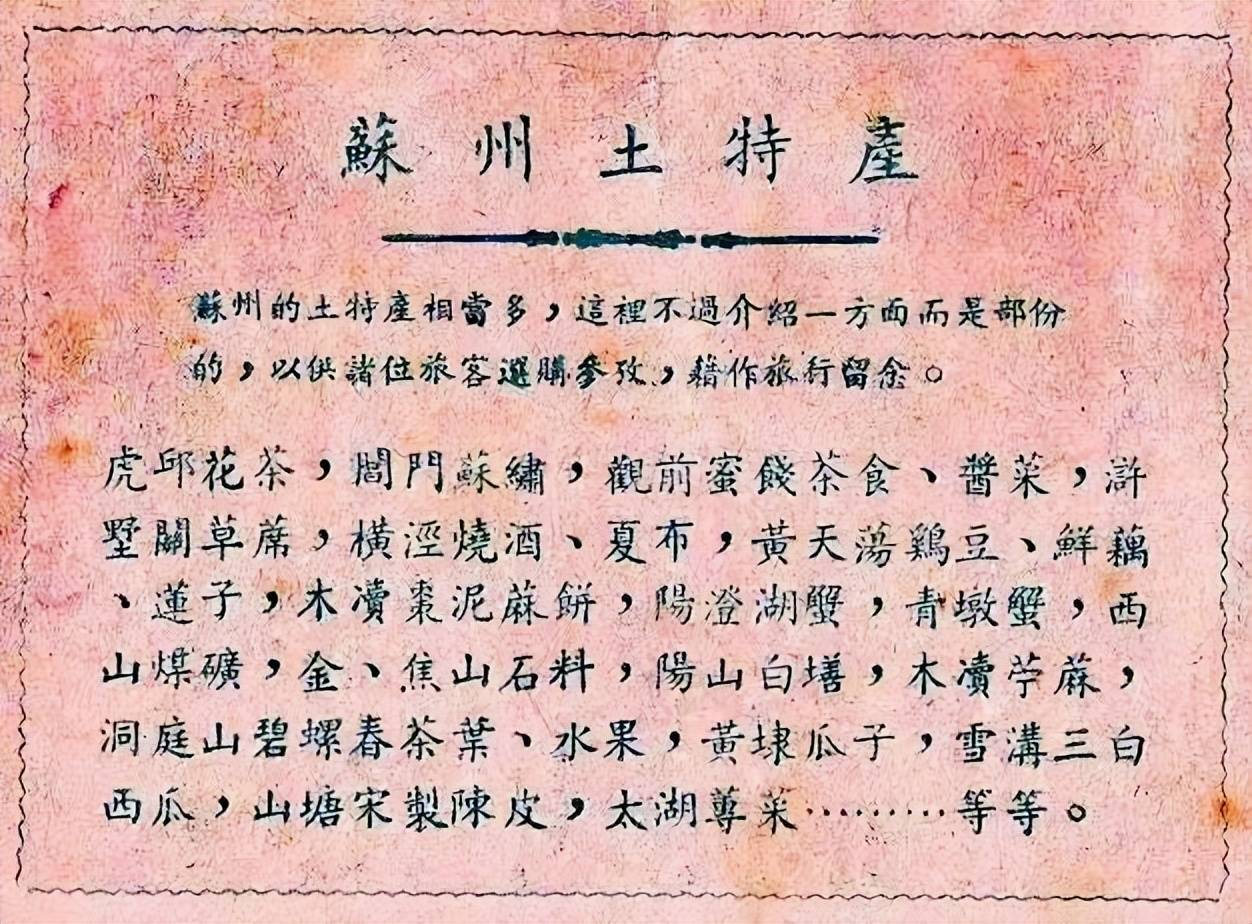 蘇州土特產
蘇州的土特產相當多，這裡不過介紹一方面而是部份
的，以供諸位旅客選購參攷，藉作旅行留念。
虎邱花茶，閶門蘇繡，觀前蜜餞茶食、醬菜，滸
墅關草蓆，橫涇燒酒、夏布，黃天蕩鷄豆、鮮藕
、蓮子，木瀆棗泥蔴餅，陽澄湖蟹，青墩蟹，西
山煤礦，金、焦山石料，陽山白墡，木瀆苧蔴，
洞庭山碧螺春茶葉、水果，黃埭瓜子，雪溝三白
西瓜，山塘宋製陳皮，太湖蓴菜………等等。